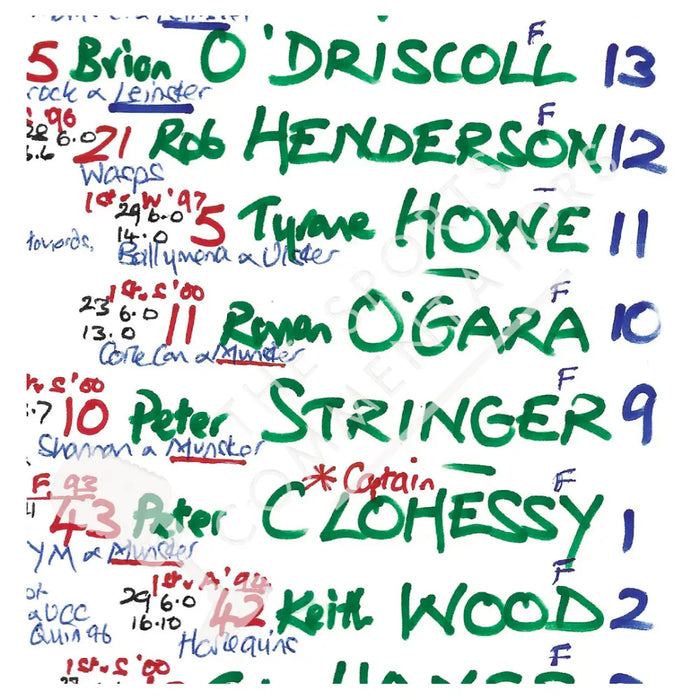 Leinster F
5 Brian O'DRISCOLL 13
rock & Leinster
'96 F
6.0 21 Rob HENDERSON 12
Wasps
1st v W '97
29 6.0 5 Tyrone HOWE 11
14.0
towards, Ballymena & Ulster
1st v S '00 F
23 6.0 11 Ronan O'GARA 10
13.0
Cork Con & Munster
1st v S '00 F
.7 10 Peter STRINGER 9
Shannon & Munster
* Captain
F 93 F
43 Peter CLOHESSY 1
YM & Munster
1st v A '94 F
29 6.0 42 Keith WOOD 2
16.10
& UCC
Quin 96 Harlequins
1st v S '00 F
HAYES
THE SPORTS
COMMENTATORS